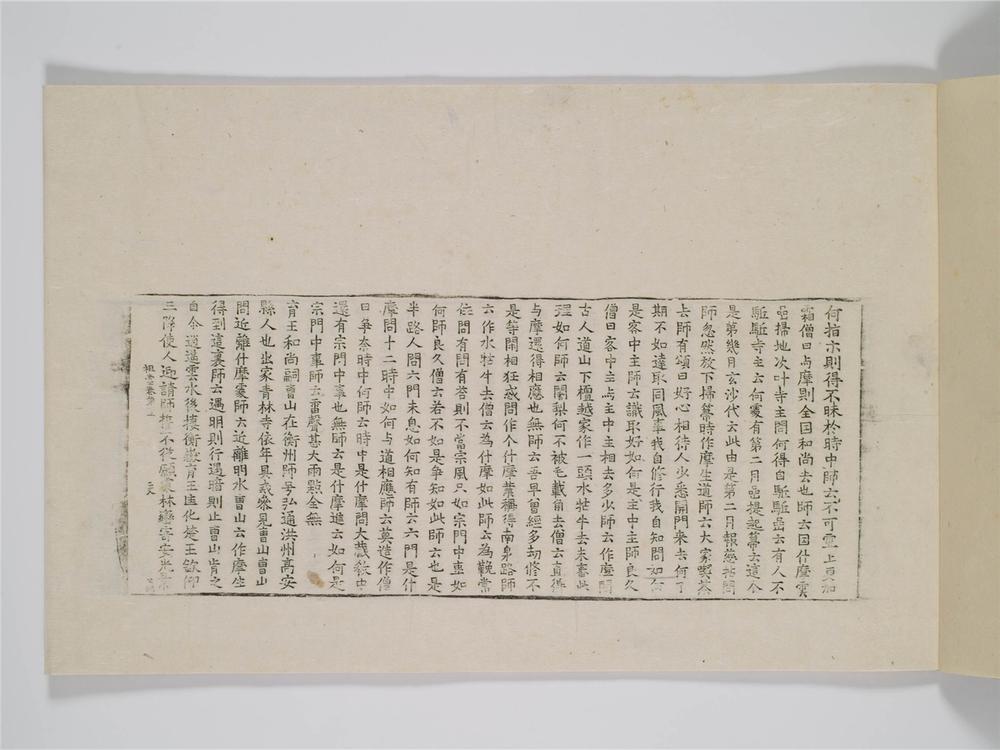 何指示則得不昧於時中師云不可雪上更加
霜僧曰与摩則全因和尚去也師云因什摩雲
嵒掃地次叶寺主問何得自駈駈嵒云有人不
駈駈寺主云何處有第二月嵒提起蒂云這个
是第幾月玄沙代云此由是第二月報慈拈問
師忽然放下掃蒂時作摩生道師云大家喫茶
去師有頌曰好心相待人少悉開門來去何
期不如達取同風事我自修行我自知問如何
是客中主師云識取好如何是主中主師良久
僧曰客中主与主中主相去多少師云作麼問
古人道山下檀越家作一頭水牯牛去未審此
理如何師云闍梨何不被毛戴角去僧云直得
与摩還得相應也無師云吾早曾經多劫修不
是等閑相狂惑問作个什摩業稱得南泉路師
云作水牯牛去僧云為什摩如此師云為觀常
住問有問有荅則不當宗風只如宗門中事如
何師良久僧云若不如是爭知如此師云也是
半路人問六門未息如何知有師云六門是什
摩問十二時中如何与道相應師云莫造作僧
曰爭奈時中何師云時中是什摩問大藏教中
還有宗門中事也無師云是什摩進云如何是
宗門中事師云雷聲甚大雨點全無
育王和尚嗣曹山在衡州師号弘通洪州高安
縣人也出家青林寺依年具戒参見曹山曹山
問近離什摩處師云近離明水曹山云作麼生
得到這裏師云遇明則行遇暗則止曹山肯之
自今逍遥雲水後捿衡嶽育王匡化楚王欽仰
三降使人迎請師